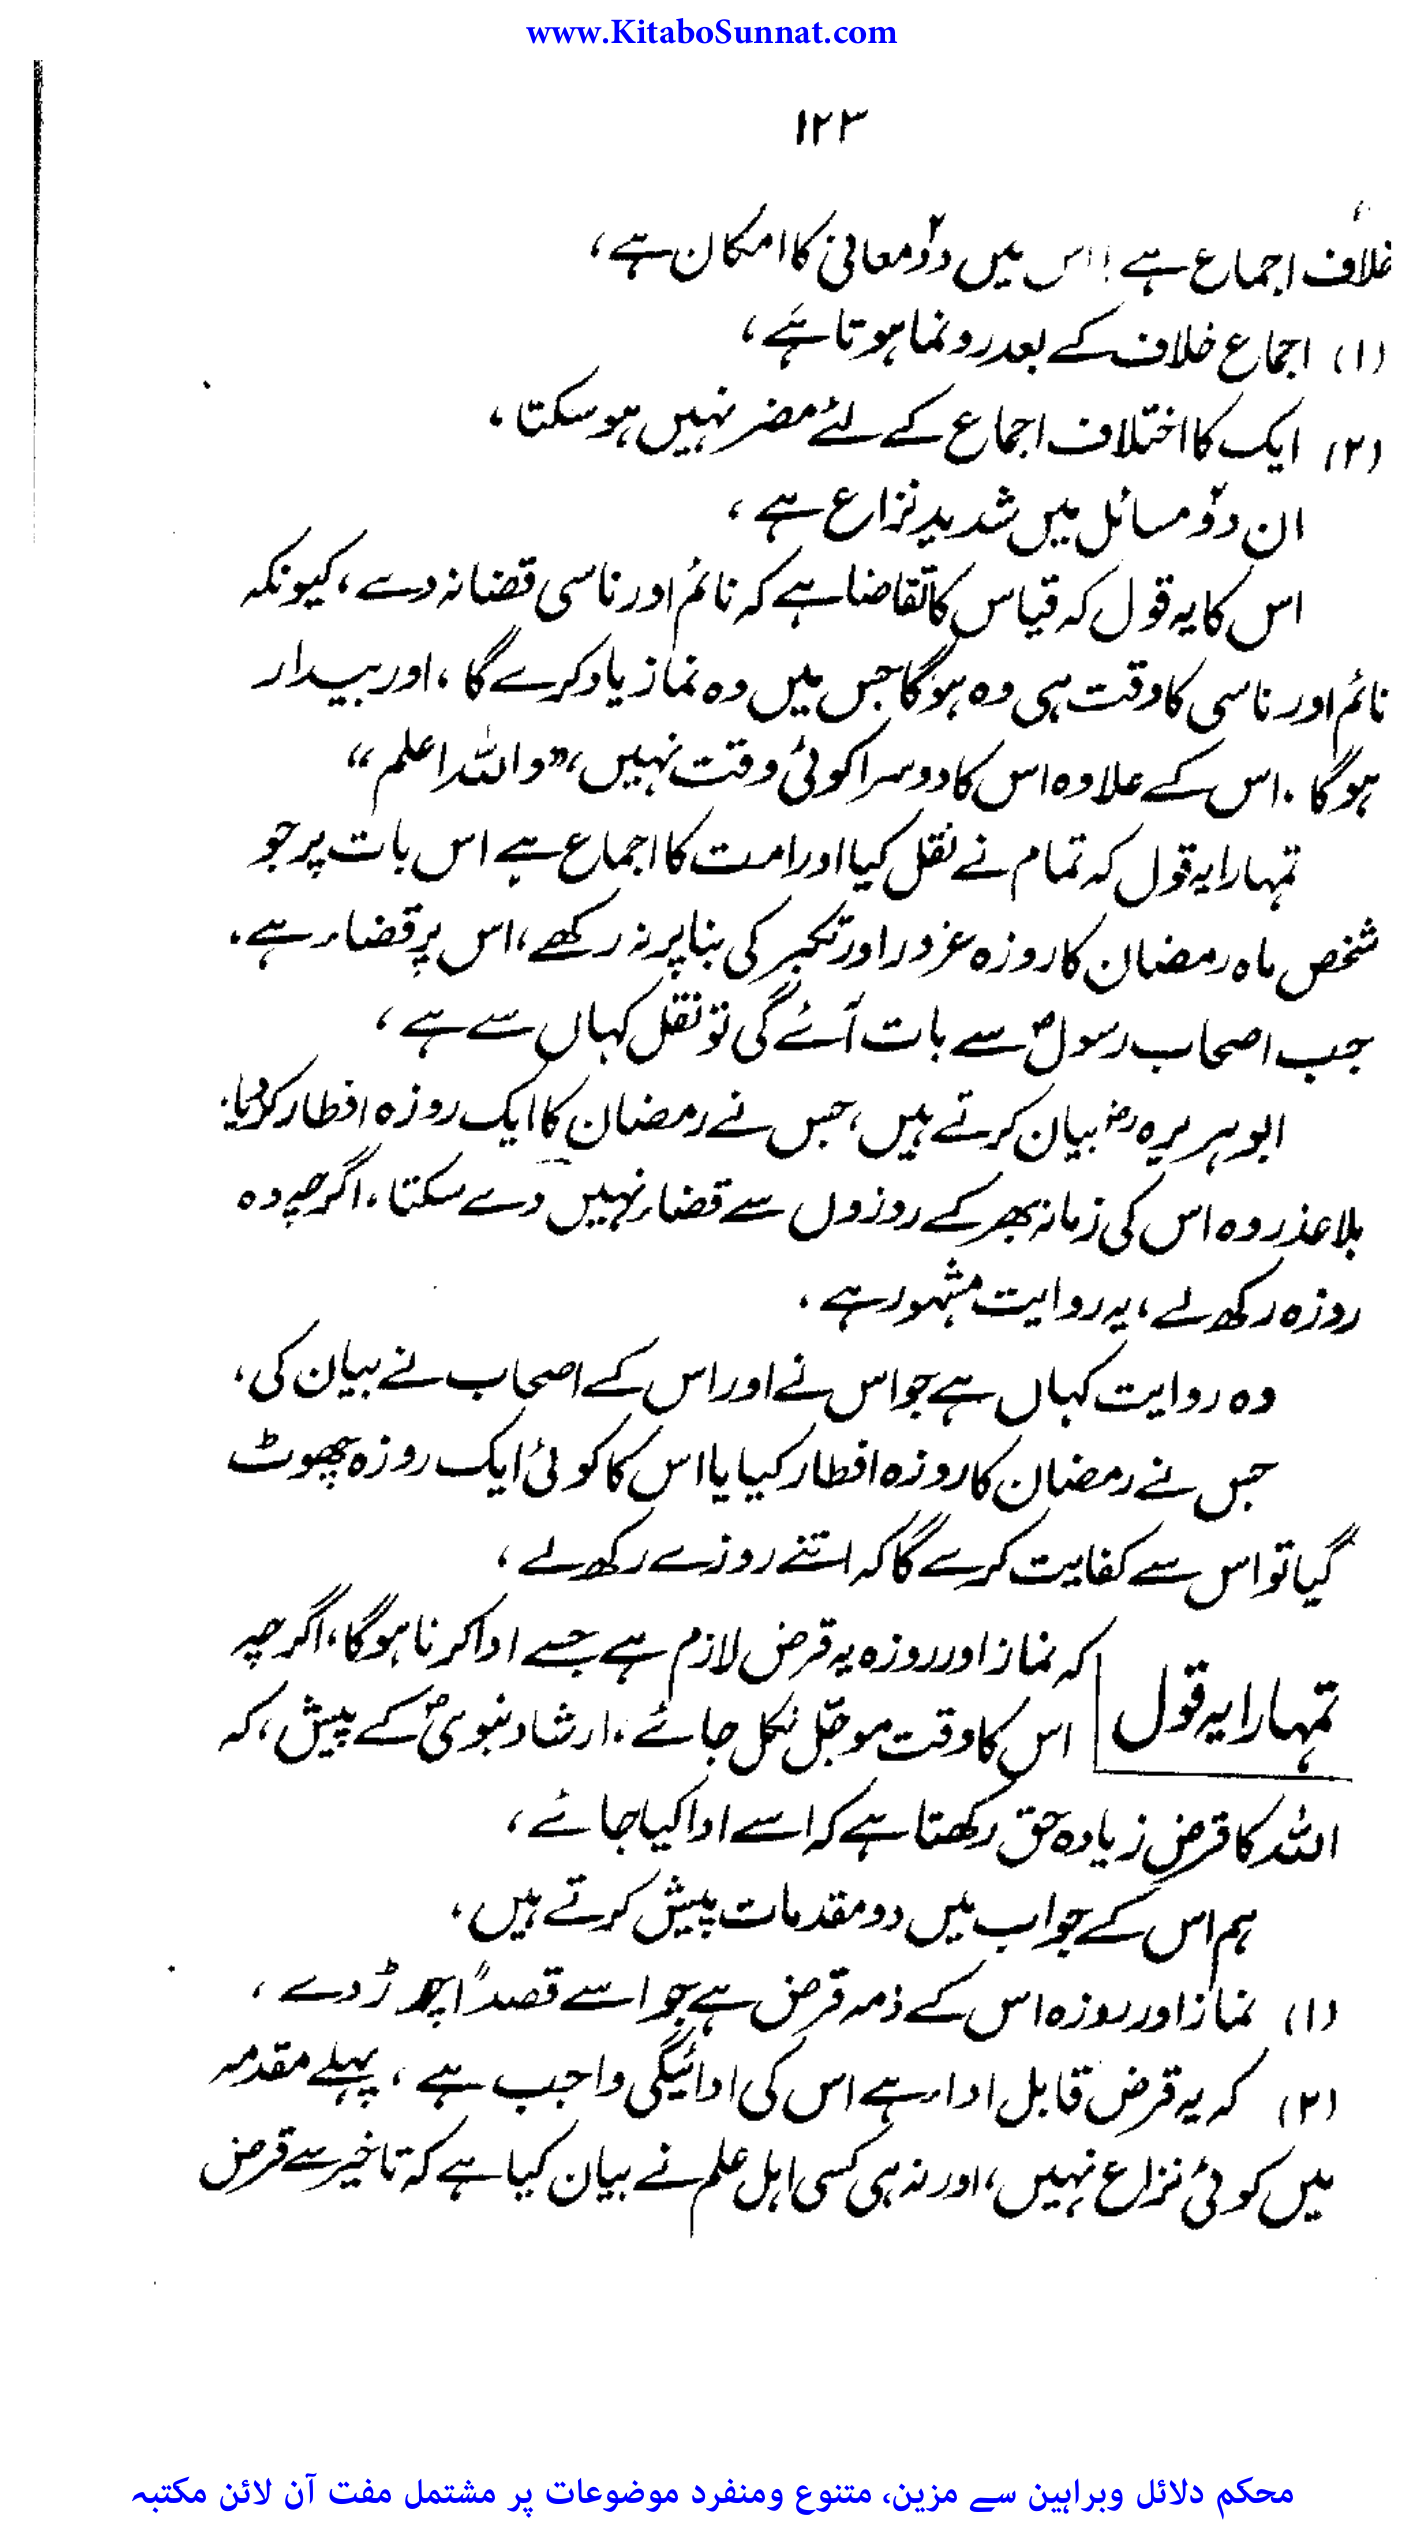 www.KitaboSunnat.com
۱۲۳
خلاف اجماع ہے! اس میں دو۲ معانی کا امکان ہے،
(۱) اجماع خلاف کے بعد رونما ہوتا ہے،
(۲) ایک کا اختلاف اجماع کے لئے مضر نہیں ہو سکتا،
ان دو۲ مسائل میں شدید نزاع ہے،
اس کا یہ قول کہ قیاس کا تقاضا ہے کہ نائم اور ناسی قضا نہ دے، کیونکہ
نائم اور ناسی کا وقت ہی وہ ہوگا جس میں وہ نماز یاد کرے گا، اور بیدار
ہوگا. اس کے علاوہ اس کا دوسرا کوئی وقت نہیں، ”واللہ اعلم“
تمہارا یہ قول کہ تمام نے نقل کیا اور امت کا اجماع ہے اس بات پر جو
شخص ماہ رمضان کا روزہ غرور اور تکبر کی بنا پر نہ رکھے، اس پر قضاء ہے.
جب اصحاب رسولؐ سے بات آئے گی تو نقل کہاں سے ہے،
ابوہریرہ رضؓ بیان کرتے ہیں، جس نے رمضان کا ایک روزہ افطار کر لیا.
بلا عذر وہ اس کی زمانہ بھر کے روزوں سے قضاء نہیں دے سکتا، اگرچہ وہ
روزہ رکھ لے، یہ روایت مشہور ہے.
وہ روایت کہاں ہے جو اس نے اور اس کے اصحاب نے بیان کی،
جس نے رمضان کا روزہ افطار کیا یا اس کا کوئی ایک روزہ چھوٹ
گیا تو اس سے کفایت کرے گا کہ اتنے روزے رکھ لے،
تمہارا یہ قول کہ نماز اور روزہ یہ قرض لازم ہے جسے ادا کرنا ہوگا، اگرچہ
اس کا وقت موجل نکل جائے، ارشاد نبویؐ کے پیش، کہ
اللہ کا قرض زیادہ حق رکھتا ہے کہ اسے ادا کیا جائے،
ہم اس کے جواب میں دو مقدمات پیش کرتے ہیں.
(۱) نماز اور روزہ اس کے ذمہ قرض ہے جو اسے قصداً چھوڑ دے،
(۲) کہ یہ قرض قابل اداء ہے اس کی ادائیگی واجب ہے، پہلے مقدمہ
میں کوئی نزاع نہیں، اور نہ ہی کسی اہل علم نے بیان کیا ہے کہ تاخیر سے قرض
محکم دلائل وبراہین سے مزین، متنوع ومنفرد موضوعات پر مشتمل مفت آن لائن مکتبہ